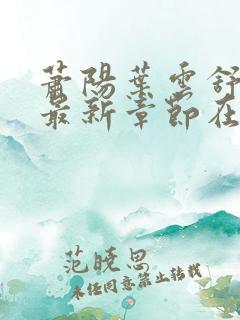 萧陽葉雲舒
最新章節在
范晓思
未经同意禁止转载